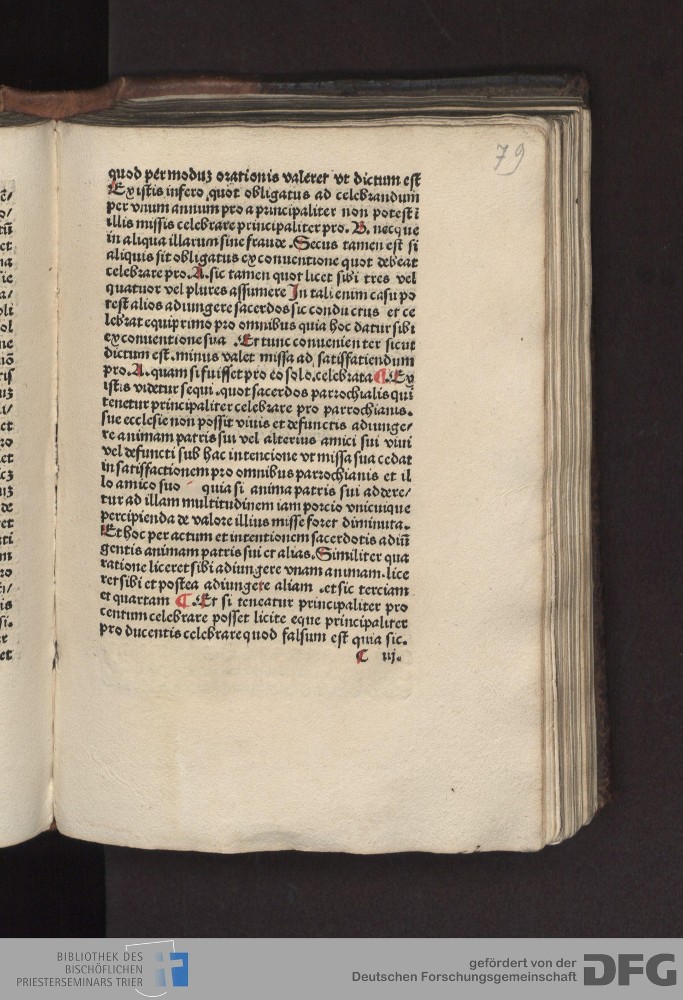 79
quod per moduȝ orationis valeret vt dictum est
Ex istis infero quot obligatus ad celebrandum
per vnum annum pro a principaliter non potest ī
illis missis celebrare principaliter pro. B. nec que
in aliqua illarum sine fraude. Secus tamen est si
aliquis sit obligatus ex conuentione quot debeat
celebrare pro. A. sic tamen quot licet sibi tres vel
quatuor vel plures assumere In tali enim casu po
test alios adiungere sacerdos sic conductus et ce
lebrat equiprimo pro omnibus quia hoc datur sibi
ex conuentione sua .Et tunc conuenienter sicut
dictum est. minus valet missa ad satisfatiendum
pro. A. quam si fuisset pro eo solo. celebrata ¶.Ex
istis videtur sequi. quot sacerdos parrochialis qui
tenetur principaliter celebrare pro parrochianis.
sue ecclesie non possit viuis et defunctis adiunge/
re animam patris sui vel alterius amici sui viui
vel defuncti sub hac intencione vt missa sua cedat
in satisfactionem pro omnibus parrochianis et il
lo amico suo quia si anima patris sui addere/
tur ad illam multitudinem iam porcio vnicuique
percipienda de valore illius misse foret diminuta.
Et hoc per actum et intentionem sacerdotis adiū
gentis animam patris sui et alias. Similiter qua
ratione liceret sibi adiungere vnam animam. lice
ret sibi et postea adiungete aliam .et sic terciam
et quartam ¶.Et si teneatur principaliter pro
centum celebrare posset licite eque principaliter
pro ducentis celebrare quod falsum est quia sic.
C iij.
BIBLIOTHEK DES
BISCHÖFLICHEN
PRIESTERSEMINARS TRIER
gefördert von der
Deutschen Forschungsgemeinschaft
DFG